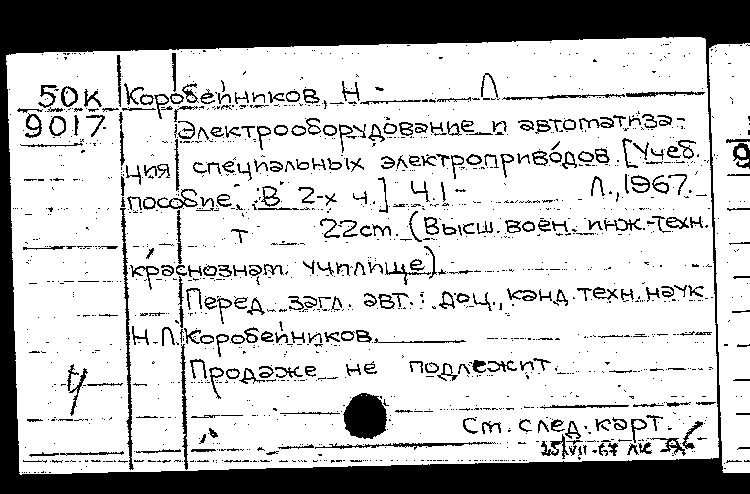 50К Коробейников, Н - Л
9017 Электрооборудование и автоматиза-
ция специальных электроприводов. [Учеб.
пособие. В 2-х ч.] Ч.1- Л., 1967.
т 22см. (Высш. воен. инж.-техн.
краснознам. училище).
Перед загл. авт.: доц., канд. техн. наук
Н.Л. Коробейников.
Продаже не подлежит.
Ст. след. карт.
25/VII-67
9